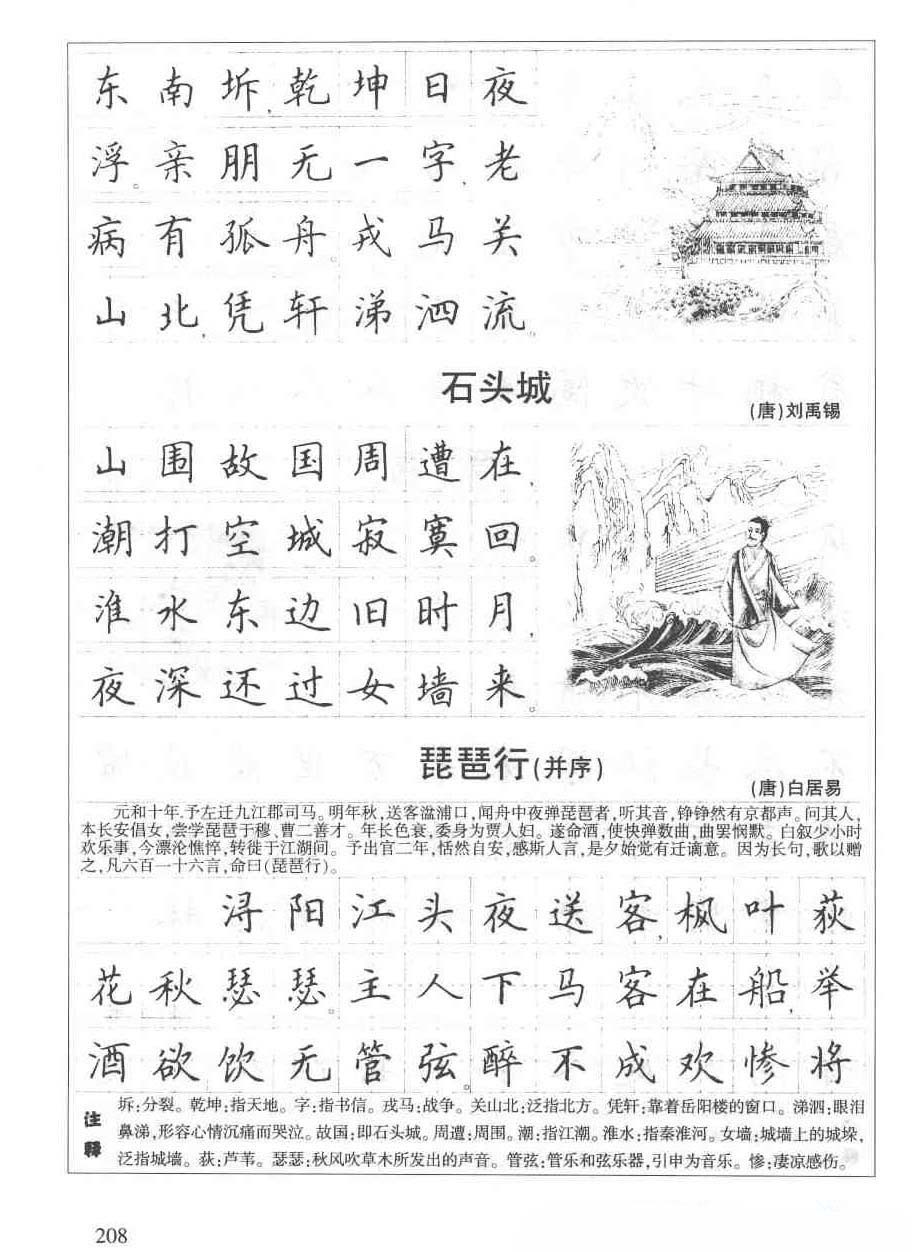 东南坼,乾坤日夜
浮。亲朋无一字,老
病有孤舟。戎马关
山北,凭轩涕泗流。
石头城
(唐)刘禹锡
山围故国周遭在,
潮打空城寂寞回。
淮水东边旧时月,
夜深还过女墙来。
琵琶行(并序)
(唐)白居易
元和十年.予左迁九江郡司马。明年秋,送客湓浦口,闻舟中夜弹琵琶者,听其音,铮铮然有京都声。问其人,
本长安倡女,尝学琵琶于穆、曹二善才。年长色衰,委身为贾人妇。遂命酒,使快弹数曲,曲罢悯默。自叙少小时
欢乐事,今漂沦憔悴,转徙于江湖间。予出官二年,恬然自安,感斯人言,是夕始觉有迁谪意。因为长句,歌以赠
之,凡六百一十六言,命曰(琵琶行)。
浔阳江头夜送客,枫叶荻
花秋瑟瑟。主人下马客在船,举
酒欲饮无管弦。醉不成欢惨将
注释
坼:分裂。乾坤:指天地。字:指书信。戎马:战争。关山北:泛指北方。凭轩:靠着岳阳楼的窗口。涕泗:眼泪
鼻涕,形容心情沉痛而哭泣。故国:即石头城。周遭:周围。潮:指江潮。淮水:指秦淮河。女墙:城墙上的城垛,
泛指城墙。荻:芦苇。瑟瑟:秋风吹草木所发出的声音。管弦:管乐和弦乐器,引申为音乐。惨:凄凉感伤。
208